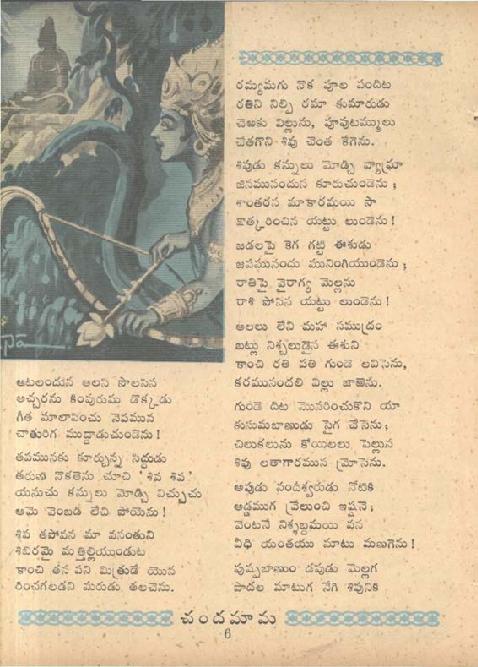 ఆటలందున అలసి సొలసిన
అచ్చరను కింపురుషు డొక్కడు
గీత మాలాపించు నెపమున
చాతురిగ ముద్దాడుచుండెను!
తపమునకు కూర్చున్న సిద్ధుడు
తరుణి నొకతెను చూచి 'శివ శివ'
యనుచు కన్నులు మోడ్చి విచ్చుచు
ఆమె వెంబడె లేచి పోయెను!
శివ తపోవన మా వసంతుని
శిబిరమై మత్తిల్లియుండుట
కాంచి తన పని మిత్రుడే యొన
రించగలడని మరుడు తలచెను.
రమ్యమగు నొక పూల పందిట
రతిని నిల్పి రమా కుమారుడు
చెఱకు విల్లును, పూవుటమ్ములు
చేతగొని శివు చెంత కేగెను.
శివుడు కన్నులు మోడ్చి వ్యాఘ్రా
జినమునందున కూరుచుండెను;
శాంతరస మాకారమయి సా
కాత్కరించిన యట్టు లుండెను!
జడలపై కెగ గట్టి ఈశుడు
జపమునందు మునింగియుండెను;
రాతిపై వైరాగ్య మెల్లను
రాశి పోసిన యట్టు లుండెను!
అలలు లేచి మహా సముద్రం
బట్లు నిశ్చలుడైన ఈశుని
కాంచి రతి పతి గుండె లవిసెను,
కరమునందలి విల్లు జాఱెను.
గుండె దిట మొనరించుకొని యా
కుసుమబాణుడు సైగ చేసెను;
చిలుకలును కోయిలలు పెల్లున
శివు లతాగారమున మ్రోసెను.
అపుడు నందీశ్వరుడు నోటికి
అడ్డముగ వ్రేలుంచి ఇష్షనె;
వెంటనే నిశ్శబ్దమయి వన
వీధి యంతయు మాటు మణుగెను!
పుష్పబాణుం డపుడు మెల్లగ
పొదల మాటుగ నేగి శివునికి
చందమామ
6